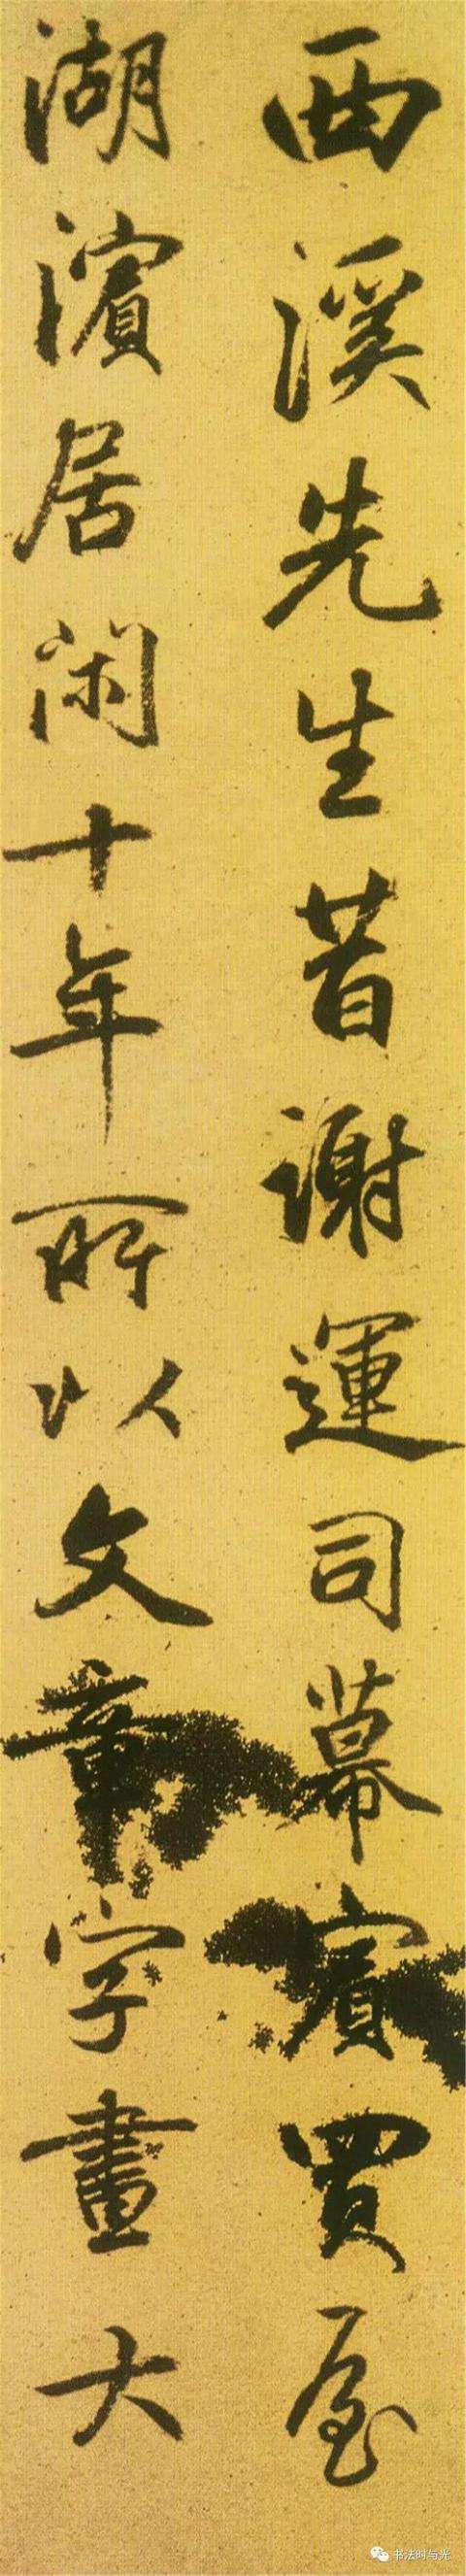 西溪先生昔謝運司幕賓買屋
湖濱居閑十年所以文章字畫大
书法时与光